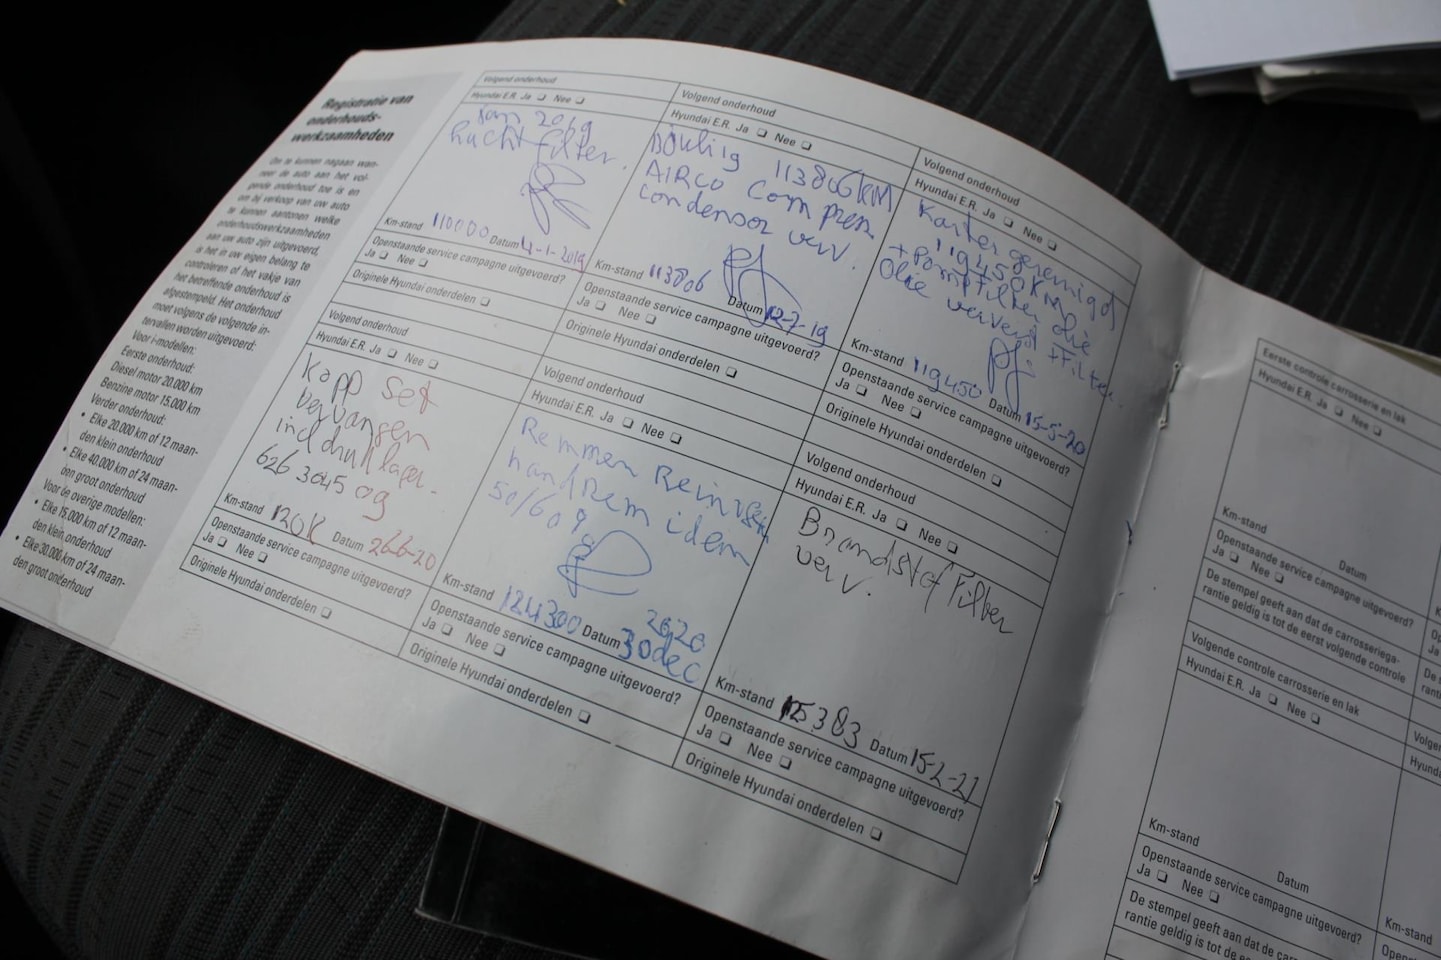 Registratie van
onderhouds-
werkzaamheden
Om te kunnen nagaan wan-
neer de auto aan het vol-
gende onderhoud toe is en
om bij verkoop van uw auto
te kunnen aantonen welke
onderhoudswerkzaamheden
aan uw auto zijn uitgevoerd,
is het in uw eigen belang te
controleren of het vakje van
het betreffende onderhoud is
afgestempeld. Het onderhoud
moet volgens de volgende in-
tervallen worden uitgevoerd:
Voor i-modellen:
Eerste onderhoud:
Diesel motor 20.000 km
Benzine motor 15.000 km
Verder onderhoud:
• Elke 20.000 km of 12 maan-
den klein onderhoud
• Elke 40.000 km of 24 maan-
den groot onderhoud
Voor de overige modellen:
• Elke 15.000 km of 12 maan-
den klein onderhoud
• Elke 30.000 km of 24 maan-
den groot onderhoud
Volgend onderhoud
Hyundai E.R. Ja ❑ Nee ❑
Jan 2019
Lucht filter.
Km-stand 110000 Datum 4-1-2019
Openstaande service campagne uitgevoerd?
Ja ❑ Nee ❑
Originele Hyundai onderdelen ❑
Volgend onderhoud
Hyundai E.R. Ja ❑ Nee ❑
113806 KM
AIRCO Compress
Condensor verv.
Km-stand 113806 Datum 12-7-19
Openstaande service campagne uitgevoerd?
Ja ❑ Nee ❑
Originele Hyundai onderdelen ❑
Volgend onderhoud
Hyundai E.R. Ja ❑ Nee ❑
Karter gereinigd
119450KM
+ Pompfilter olie
Olie ververst + Filter.
Km-stand 119450 Datum 15-5-20
Openstaande service campagne uitgevoerd?
Ja ❑ Nee ❑
Originele Hyundai onderdelen ❑
Volgend onderhoud
Hyundai E.R. Ja ❑ Nee ❑
Kopp Set
vervangen
incl druklager.
626 3045 09
Km-stand 120K Datum 26-6-20
Openstaande service campagne uitgevoerd?
Ja ❑ Nee ❑
Originele Hyundai onderdelen ❑
Volgend onderhoud
Hyundai E.R. Ja ❑ Nee ❑
Remmen Reinigen
handrem idem
50/60
Km-stand 124300 Datum 2020
30 dec
Openstaande service campagne uitgevoerd?
Ja ❑ Nee ❑
Originele Hyundai onderdelen ❑
Volgend onderhoud
Hyundai E.R. Ja ❑ Nee ❑
Brandstof Filter
verv.
Km-stand 125383 Datum 15-2-21
Openstaande service campagne uitgevoerd?
Ja ❑ Nee ❑
Originele Hyundai onderdelen ❑
Eerste controle carrosserie en lak
Hyundai E.R. Ja ❑ Nee ❑
Km-stand Datum
Openstaande service campagne uitgevoerd?
Ja ❑ Nee ❑
De stempel geeft aan dat de carrosseriega-
rantie geldig is tot de eerst volgende controle
Volgende controle carrosserie en lak
Hyundai E.R. Ja ❑ Nee ❑
Km-stand Datum
Openstaande service campagne uitgevoerd?
Ja ❑ Nee ❑
De stempel geeft aan dat de ca
rantie geldig is tot de eerst vo
Km-stand